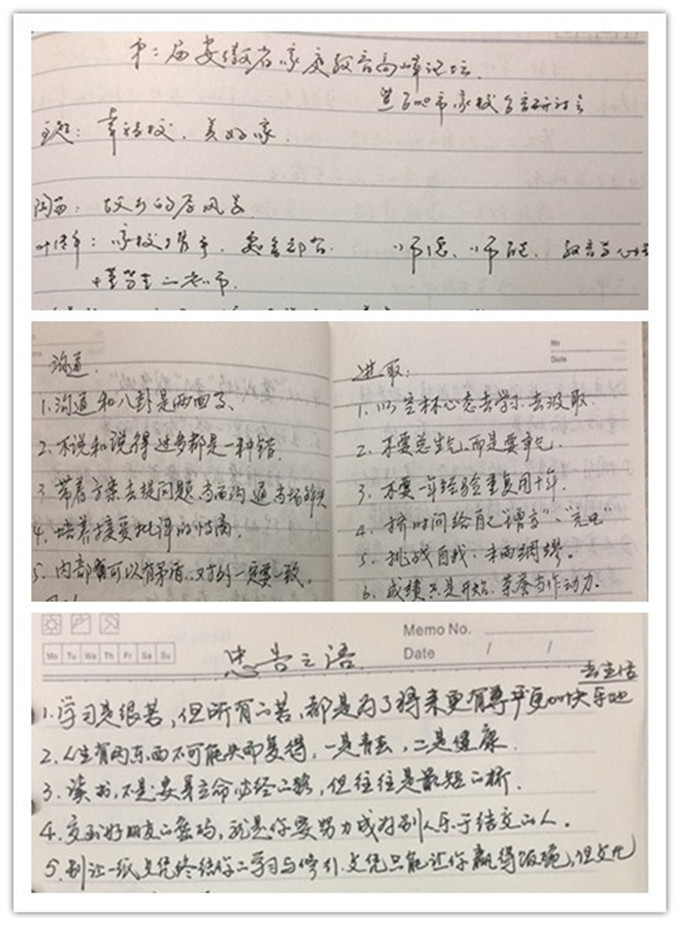 第二届安徽省家庭教育高峰论坛
家校
主题：幸福校、美好家
陶西：故乡的
家校 教育
沟通
1、沟通和八卦是两回事、
2、不说和说得过多都是一种错.
3 带着方案去提问题、当面沟通 当场解决
4、培养接受批评的情商.
5、内部可以有矛盾、对外一定要一致。
Date
进取：
1、以空杯心态去学习、去汲取
2、不要总生气、而是要争气.
3、不要一年经验重复用十年.
4、挤时间给自己"增高"、"充电"
5、挑战自我、未雨绸缪。
6、成绩只是开始、荣誉当作动力.
Mo Tu We Th Fr Sa Su
Memo No.
Date / /
忠告之语
去生活
1、学习是很苦，但所有的苦，都是为了将来更有尊严更加快乐地
2、人生有两东西不可能失而复得，一是青春，二是健康.
3、读书，不是安身立命必经之路，但往往是最短的桥.
4、交到好朋友的密码，就是你要努力成为别人乐于结交的人.
5、别让一纸文凭终结你的学习与修行.文凭只能让你赢得饭碗，但文化